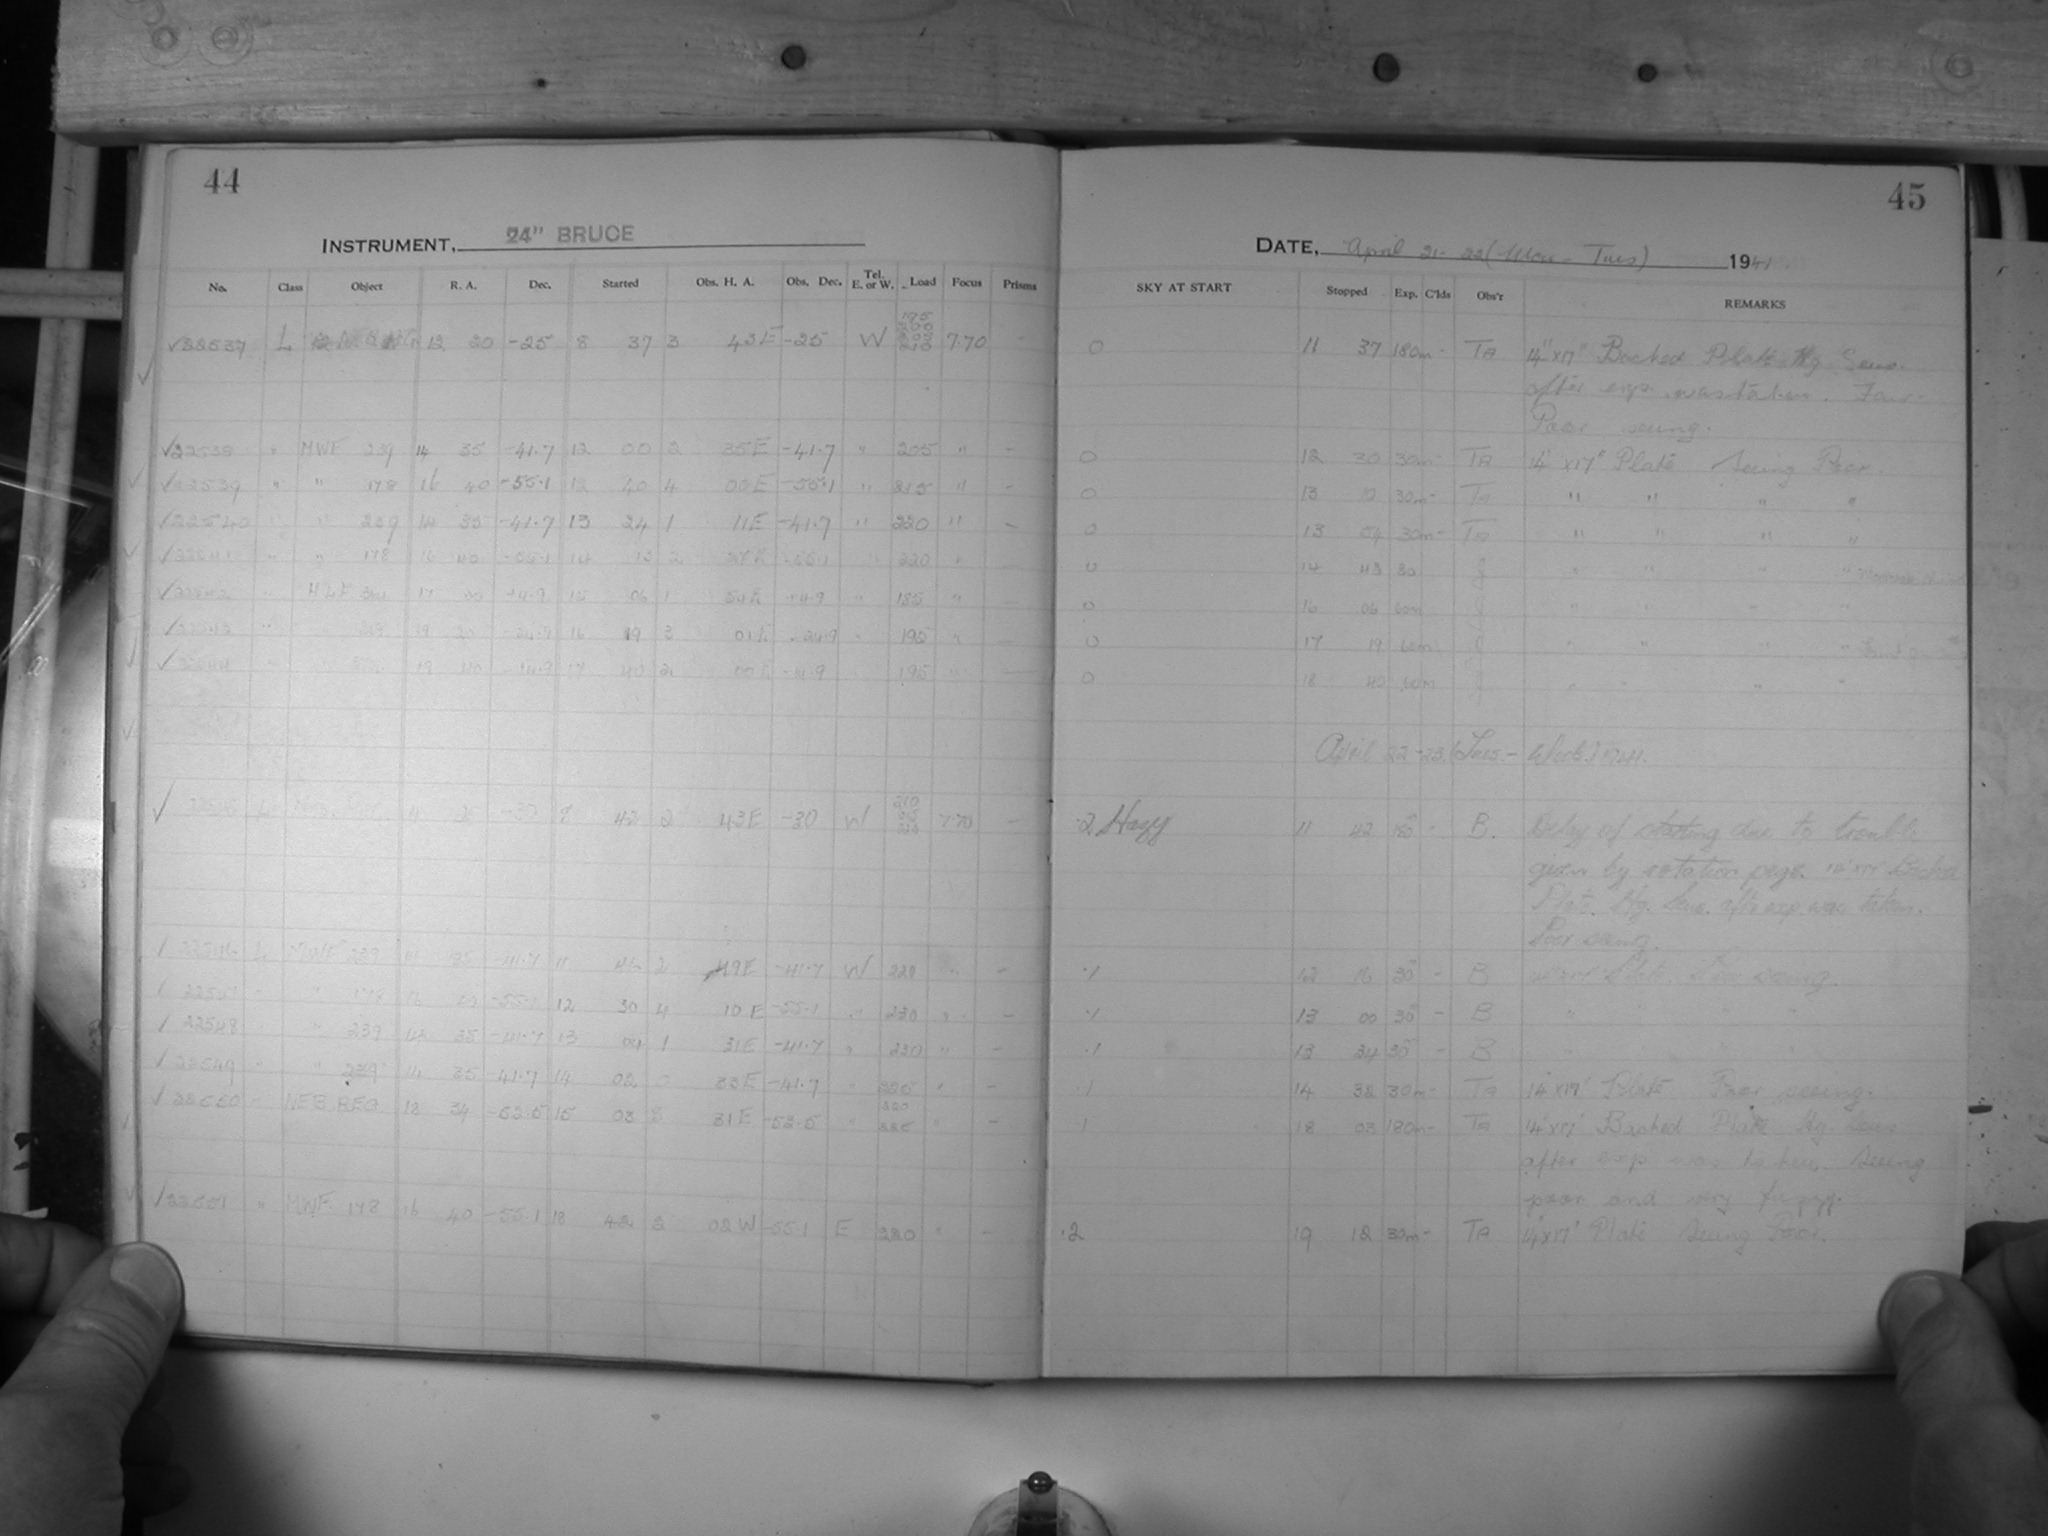 44
INSTRUMENT, 24" BRUCE
No. Class Object R. A. Dec. Started Obs. H. A. Obs. Dec. Tel. E. or W. Load Focus Prisms
22537 L 12 20 -25 8 37 3 43E -25 W 7.70 -
22538 " MWF 239 14 35 -41.7 12 00 2 35E -41.7 " 205 " -
22539 " " 178 16 40 -55.1 12 40 4 00E -55.1 " 215 " -
22540 " " 239 14 35 -41.7 13 24 1 11E -41.7 " 220 " -
22541 " " 178 16 40 -55.1 14 13 2 27E -55.1 " 220 " -
17 15 06 1 54E " 185 " -
19 16 19 3 01E -24.9 " 195 " -
19 40 -14.9 17 40 2 00E -14.9 195 " -
-30 8 42 2 43E -30 W 7.70 -
22546 L MWF 239 14 35 -41.7 11 46 2 49E -41.7 W 220 " -
22547 " " 178 16 40 -55.1 12 30 4 10E -55.1 " 230 " -
22548 " 239 14 35 -41.7 13 04 1 31E -41.7 " 230 " -
22549 " " 239 14 35 -41.7 14 02 0 33E -41.7 " 225 " -
22550 " NEB REG 18 34 -53.5 15 03 31E -53.5 " " -
22551 " MWF 178 16 40 -55.1 18 42 2 02W -55.1 E 220 " -
45
DATE, April 21-22 (Mon - Tues) 1941
SKY AT START Stopped Exp. C'lds Obs'r REMARKS
0 11 37 180m - TA 14" x 17" Backed Plate Hg Sens.
after exp. was taken. Fair-
Poor seeing.
0 12 30 30m - TA 14" x17" Plate Seeing Poor.
0 13 10 30m - TA " " " "
0 13 54 30m - TA " " " "
0 14 43 30 J " " " "
0 16 06 60m J " " " "
0 17 19 60m J " " " "
0 18 40 60m J " " " "
April 22-23 (Tues.- Wed.) 1941.
.2 Hazy 11 42 180 - B. Delay of starting due to trouble
given by rotation pegs. 14"x17" Backed
Plate. Hg. Sens. after exp. was taken.
Poor seeing.
.1 12 16 30 - B 14"x17" Plate. Poor seeing.
.1 13 00 30 - B " " " "
.1 13 34 30 - B " " " "
.1 14 32 30m - TA 14"x17" Plate Poor seeing.
.1 18 03 180m - TA 14"x17" Backed Plate Hg. Sens
after exp was taken. Seeing
poor and very fuzzy.
.2 19 12 30m - TA 14"x17" Plate Seeing Poor.